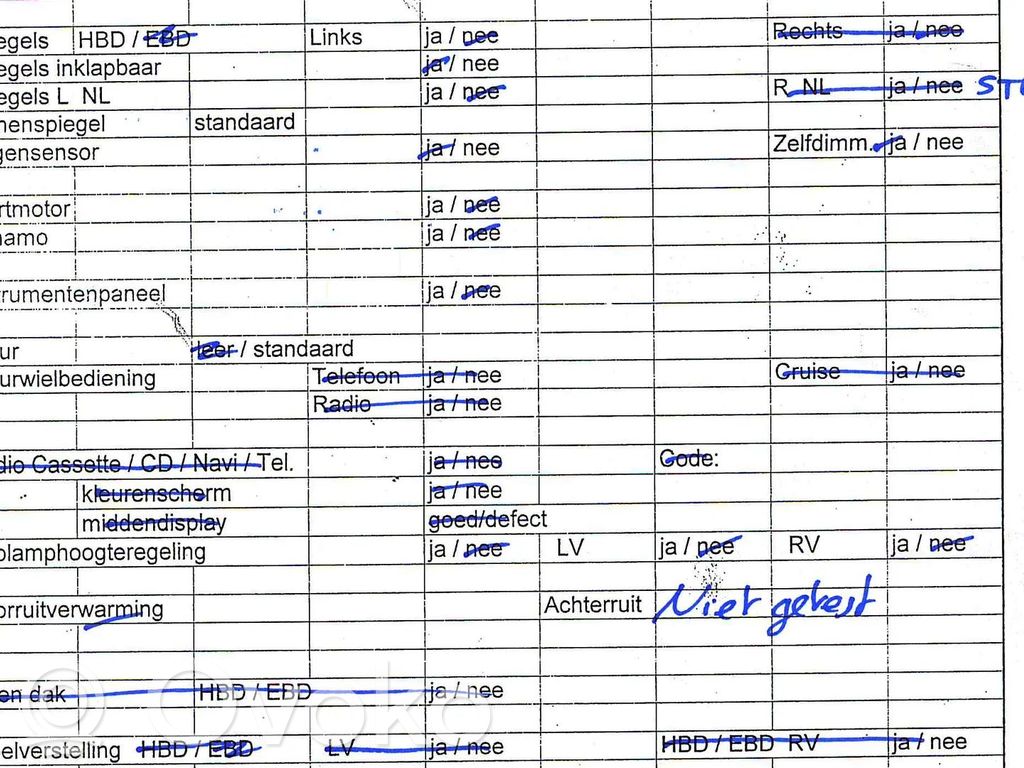 egels HBD / EBD Links ja / nee Rechts ja / nee
egels inklapbaar ja / nee
egels L NL ja / nee R NL ja / nee
nenspiegel standaard
gensensor ja / nee Zelfdimm. ja / nee
rtmotor ja / nee
namo ja / nee
trumentenpaneel ja / nee
ur leer / standaard
urwielbediening Telefoon ja / nee Cruise ja / nee
Radio ja / nee
dio Cassette / CD / Navi / Tel. ja / nee Code:
kleurenscherm ja / nee
middendisplay goed/defect
plamphoogteregeling ja / nee LV ja / nee RV ja / nee
orruitverwarming Achterruit Niet getest
en dak HBD / EBD ja / nee
elverstelling HBD / EBD LV ja / nee HBD / EBD RV ja / nee
© Ovoko